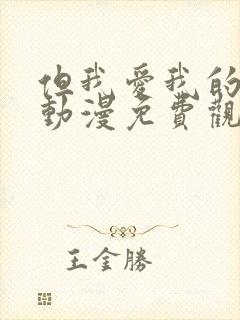 但我愛我的
動漫免費觀
王金勝